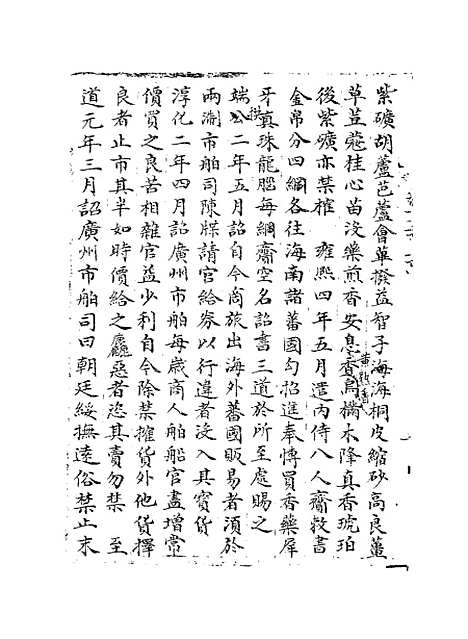 紫礦胡蘆芭蘆會蓽撥益智子海海桐皮縮砂高良薑
草荳蔻桂心苗没藥煎香安息香黄熟香烏樠木降真香琥珀
後紫礦亦禁榷 雍熙四年五月遣内侍八人齎敕書
金帛分四綱各往海南諸蕃國勾招進奉愽買香藥犀
牙真珠龍腦每綱齎空名詔書三道於所至處賜之
端拱二年五月詔自今商旅出海外蕃國販易者須於
兩淛市舶司陳牒請官給券以行違者没入其寳貨
淳化二年四月詔廣州市舶每歳商人舶船官盡增常
價買之良苦相雜官益少利自今除禁㩁貨外他貨擇
良者止市其半如時價給之麤惡者恣其賣勿禁 至
道元年三月詔廣州市舶司曰朝廷綏撫遠俗禁止末